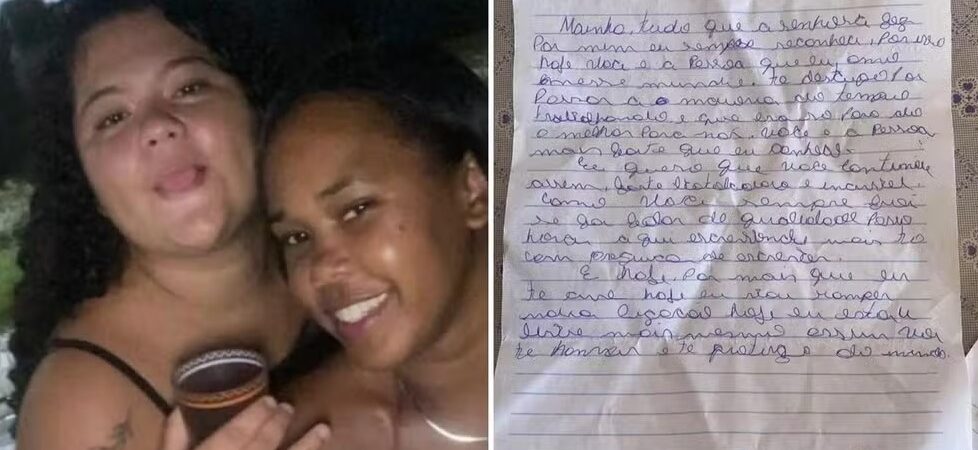 Mainha, tudo que a senhora fez
Por mim eu sempre reconheci, Por isso
hoje você e a Pessoa que eu amo
nesse mundo. te desculpe Por
Passar a maioria do tempo
trabalhando e que era Para da
o melhor Para nos. Você e a Pessoa
mais forte que eu conheci.
Eu quero que você continue
assim, forte trabalhadora e incrivel.
Como Você sempre foi
horas aqui escrevendo mais to
com preguiça de escrever.
E hoje, Por mais que eu
te ame hoje eu vou romper
nossa ligação hoje eu estou
livre mais mesmo assim vou
te honrar e te proteger do mundo